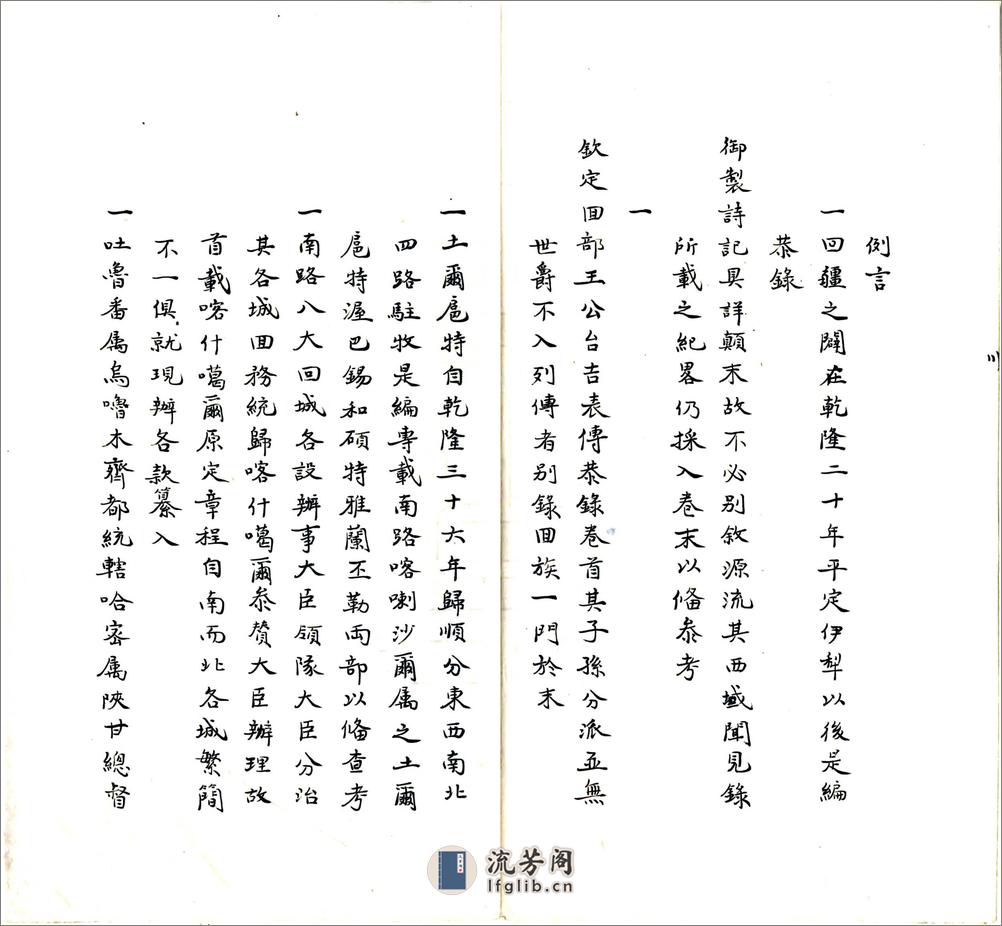 例言
一回疆之闢在乾隆二十年平定伊犁以後是編
恭錄
御製詩記具詳顛末故不必別敘源流其西域聞見錄
所載之紀畧仍採入卷末以俻叅考
一
欽定回部王公台吉表傳恭錄卷首其子孫分派並無
世爵不入列傳者別錄回族一門於末
一土爾扈特自乾隆三十六年歸順分東西南北
四路駐牧是編專載南路喀喇沙爾属之土爾
扈特渥巴錫和碩特雅蘭丕勒両部以俻查考
一南路八大回城各設辦事大臣領隊大臣分治
其各城回務統歸喀什噶爾叅贊大臣辦理故
首載喀什噶爾原定章程自南而北各城繁簡
不一俱就現辦各款纂入
一吐魯番属烏嚕木齊都統轄哈密属陝甘總督
流芳阁
lfglib.cn